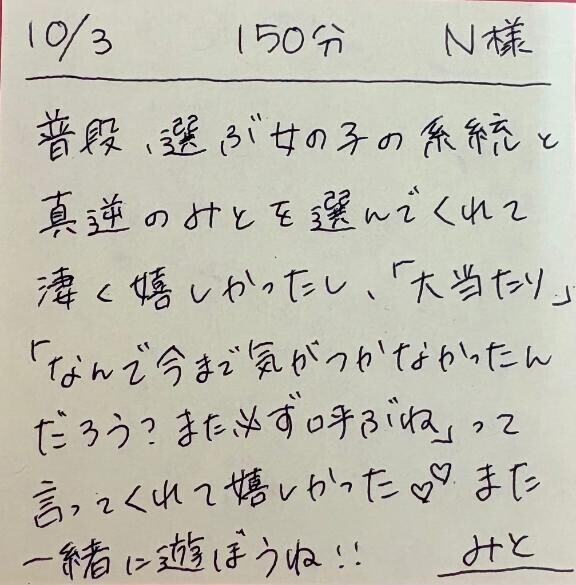 10/3 150分 N様
普段、選ぶ女の子の系統と
真逆のみとを選んでくれて
凄く嬉しかったし、「大当たり」
「なんで今まで気がつかなかったん
だろう?また必ず呼ぶね」って
言ってくれて嬉しかった♡♡ また
一緒に遊ぼうね!! みと